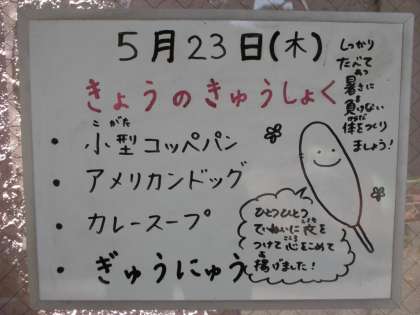 5月23日(木)
きょうのきゅうしょく
・小型コッペパン
こがた
・アメリカンドッグ
・カレースープ
・ぎゅうにゅう
しっかり
たべて
暑さに
あつ
負けない
ま
体をつくり
からだ
ましょう!
ひとつひとつ
ていねいに衣を
ころも
つけて心をこめて
こころ
揚げました!
あ